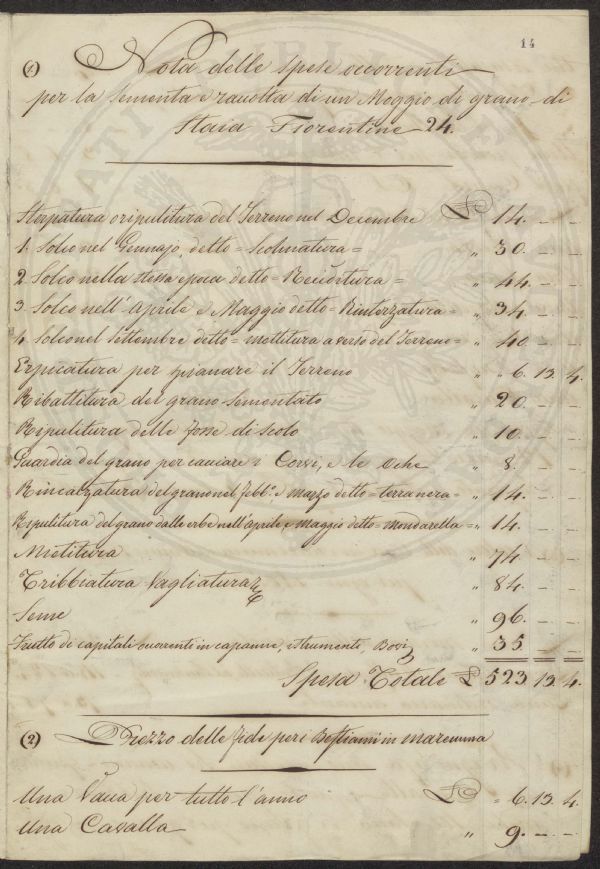 14
(1) Nota delle spese occorrenti
per la sementa e racolta di un Moggio di grano di
Staia Fiorentine 24.
Sterpatura o ripulitura del Terreno nel Decembre £ 14. — —
1. Solco nel Gennajo, detto = Scolmatura = " 30. — —
2. Solco nella stessa epoca detto = Reciditura = " 44. — —
3. Solco nell'Aprile e Maggio detto = Rinterzatura = " 34. — —
4. Solco nel Settembre detto = mettitura a verso del Terreno = " 40. — —
Erpicatura per spianare il Terreno " " 6. 13. 4.
Ribattitura del grano sementato " 20. — —
Ripulitura delle fosse di scolo " 10. — —
Guardia del grano per cacciare i Corvi, e le Oche " 8. — —
Rincalzatura del grano nel febb.o e marzo detto = terranera = " 14. — —
Ripulitura del grano dalle erbe nell'aprile e maggio detto = mondarella = " 14. — —
Mietitura " 74. — —
Tribbiatura Vagliatura " 84. — —
Seme " 96. — —
Frutto di capitali occorrenti in capanne, istrumenti, Bovi " 35. — —
Spesa Totale £ 523. 13. 4.
(2) Prezzo delle fide per i Bestiami in maremma
Una Vacca per tutto l'anno £ " 6. 13. 4.
Una Cavalla " 9. — —